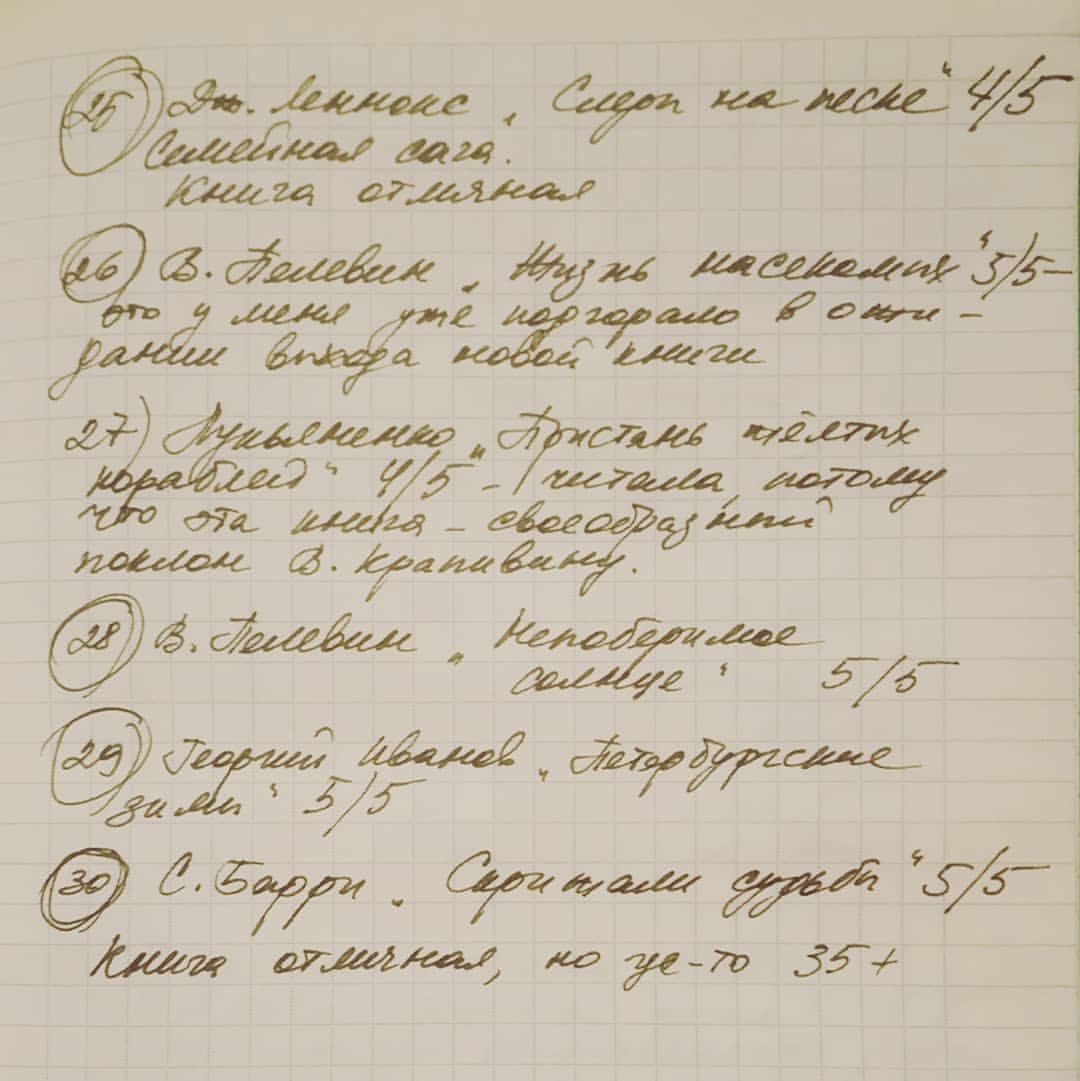 25 Дж. Леннокс „Следы на песке“ 4/5
Семейная сага.
Книга отличная
26 В. Пелевин „Жизнь насекомых“ 5/5 –
это у меня уже подгорало в ожи-
дании выхода новой книги
27) Лукьяненко „Пристань жёлтых
кораблей“ 4/5 – читала, потому
что эта книга – своеобразный
поклон В. Крапивину.
28 В. Пелевин „Непобедимое
солнце“ 5/5
29 Георгий Иванов „Петербургские
зимы“ 5/5
30 С. Барри „Скрижали судьбы“ 5/5
Книга отличная, но где-то 35+